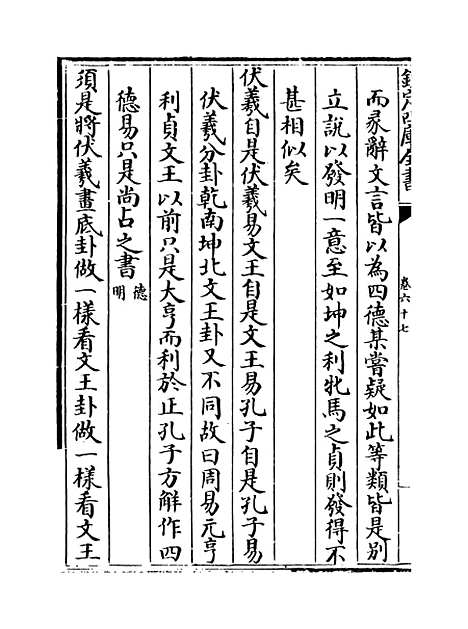 欽定四庫全書
卷六十七
而彖辭文言皆以為四德某嘗疑如此等類皆是別
立說以發明一意至如坤之利牝馬之貞則發得不
甚相似矣
伏羲自是伏羲易文王自是文王易孔子自是孔子易
伏羲分卦乾南坤北文王卦又不同故曰周易元亨
利貞文王以前只是大亨而利於正孔子方解作四
德易只是尚占之書德明
須是將伏羲畫底卦做一樣看文王卦做一樣看文王